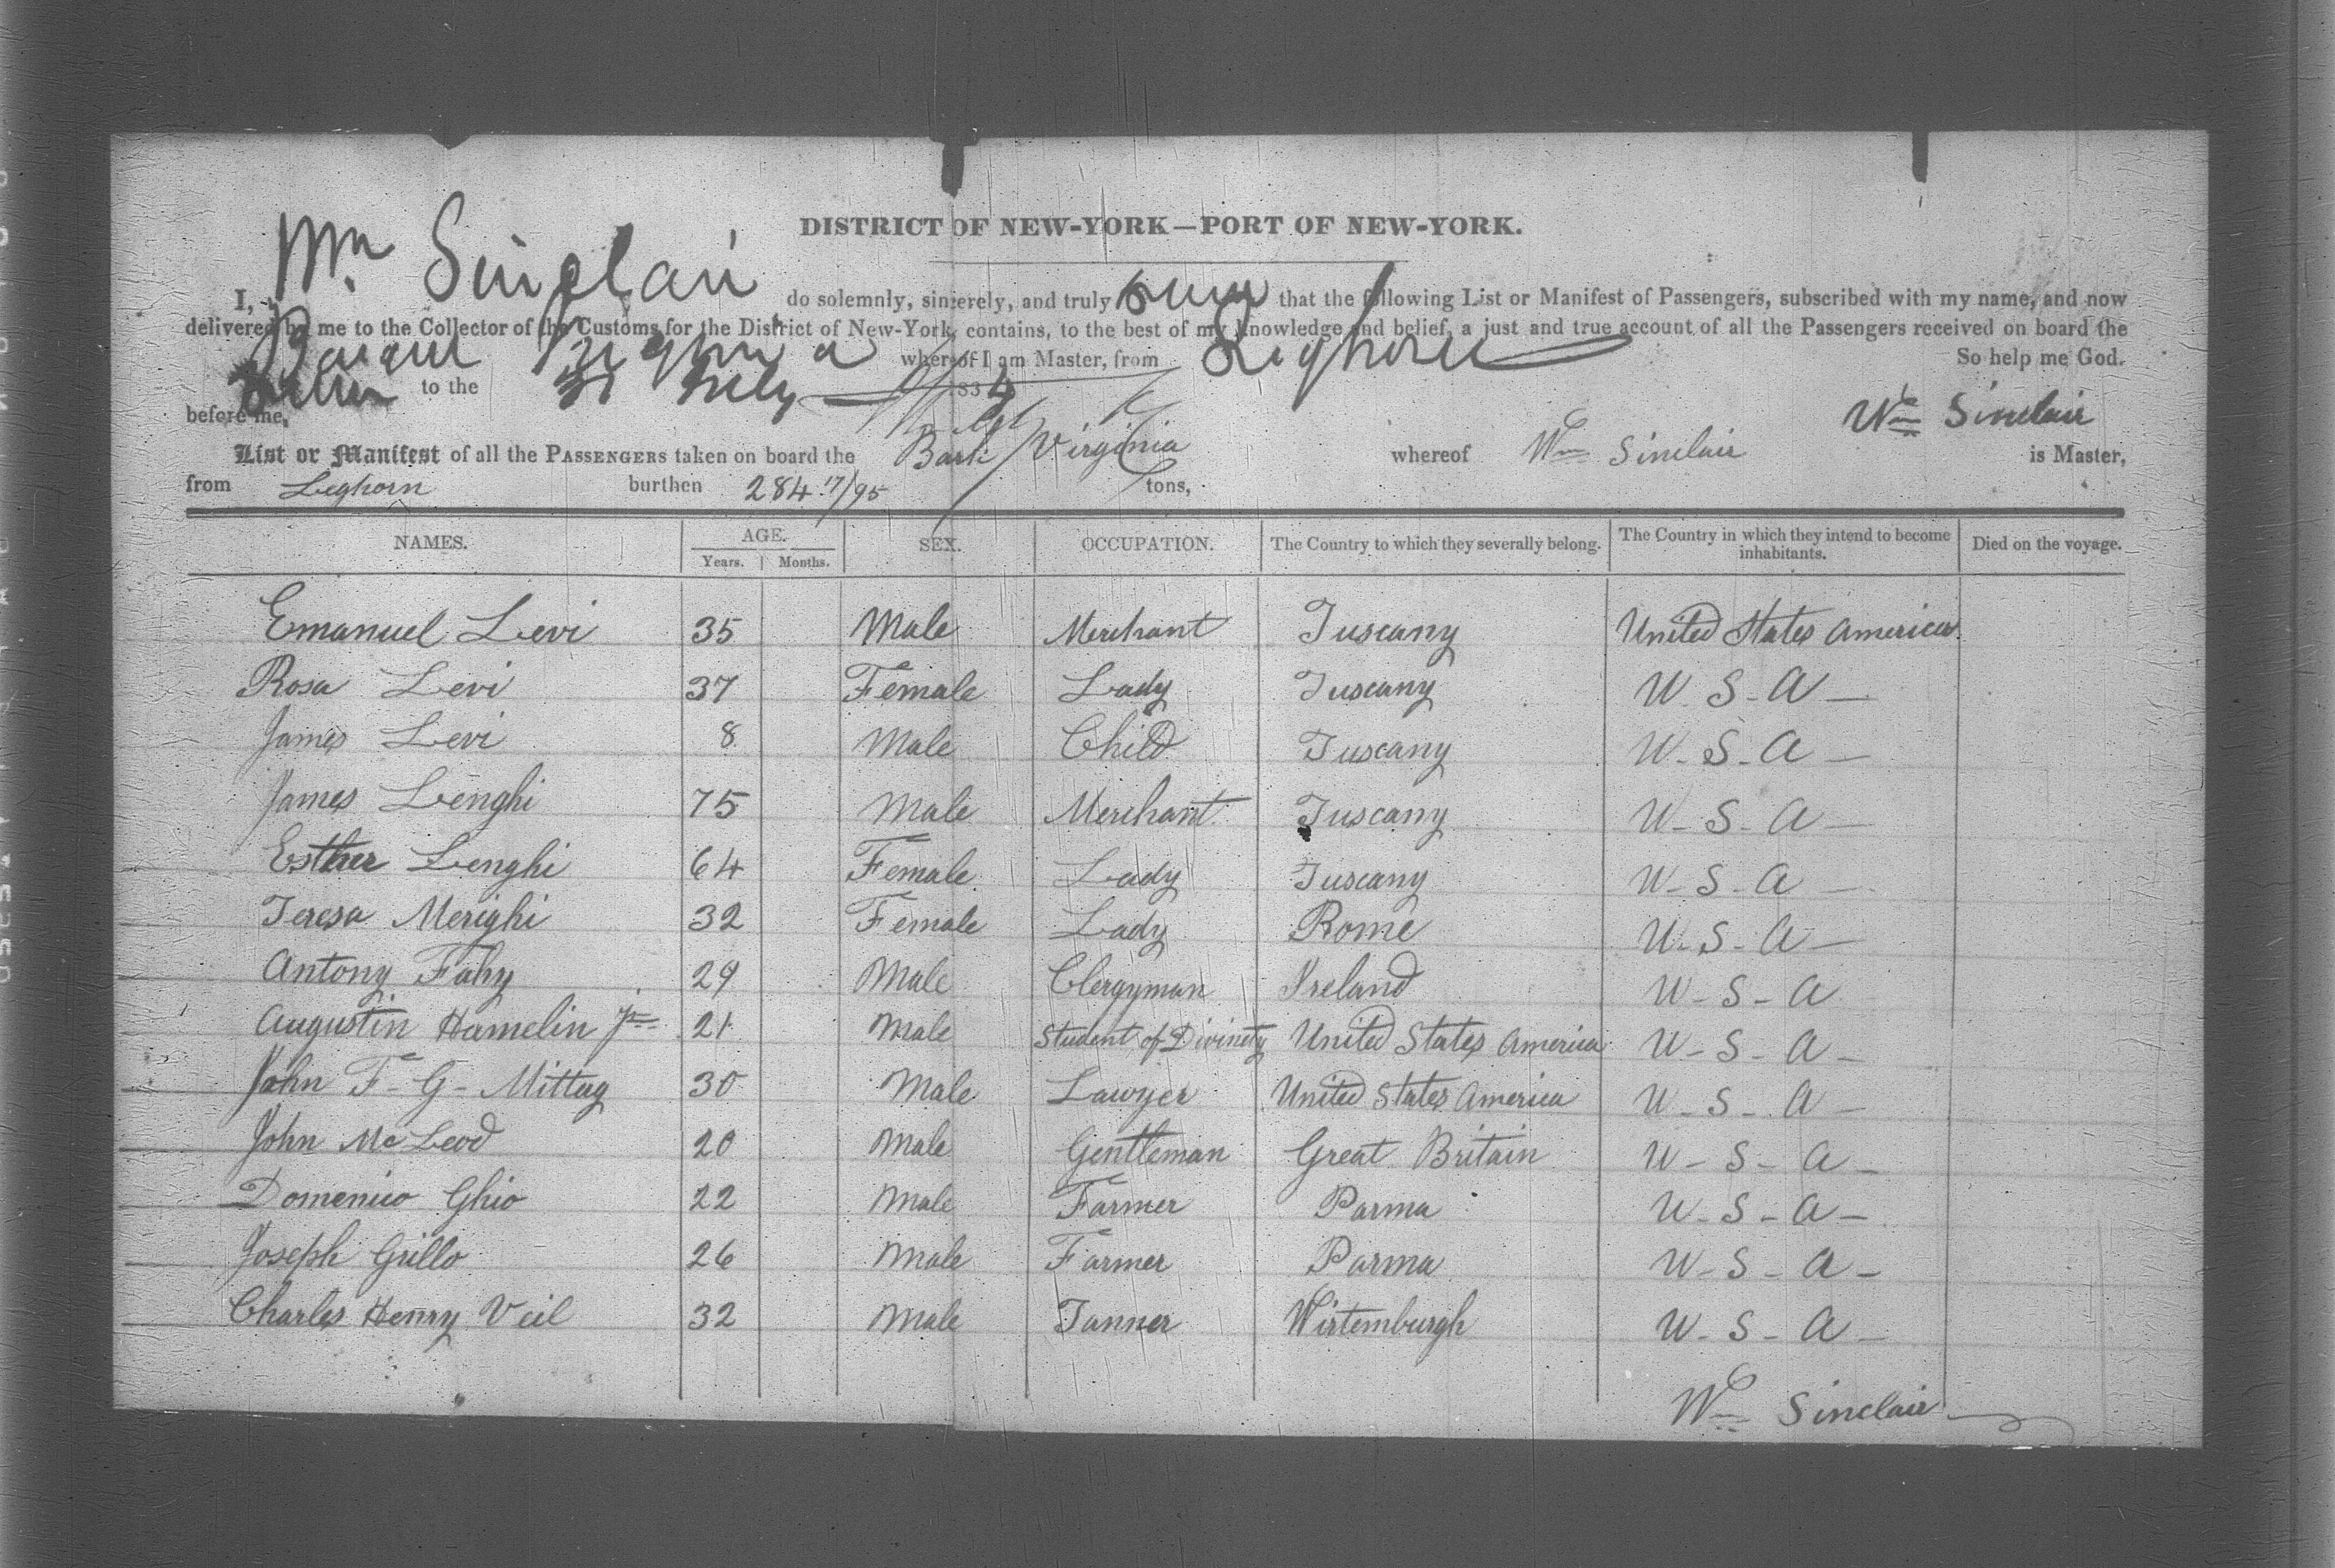 DISTRICT OF NEW-YORK—PORT OF NEW-YORK.
I, Wm Sinclair do solemnly, sincerely, and truly swear that the following List or Manifest of Passengers, subscribed with my name, and now
delivered by me to the Collector of the Customs for the District of New-York, contains, to the best of my knowledge and belief, a just and true account of all the Passengers received on board the
Barque Virginia whereof I am Master, from Leghorn So help me God.
to the 31 July 1834
before me, Wm Sinclair
List or Manifest of all the PASSENGERS taken on board the Bark Virginia whereof Wm Sinclair is Master,
from Leghorn burthen 284 17/95 tons,
NAMES. AGE. SEX. OCCUPATION. The Country to which they severally belong. The Country in which they intend to become inhabitants. Died on the voyage.
Years. Months.
Emanuel Levi 35 Male Merchant Tuscany United States America
Rosa Levi 37 Female Lady Tuscany U. S - A —
James Levi 8 Male Child Tuscany U - S - A —
James Lenghi 75 Male Merchant Tuscany U - S - A —
Esther Lenghi 64 Female Lady Tuscany U - S - A —
Teresa Merighi 32 Female Lady Rome U - S - A —
Antony Fahy 29 Male Clergyman Ireland U - S - A
Augustin Hamelin Jr 21 Male Student of Divinety United States America U - S - A —
John F - G - Mittag 30 Male Lawyer United States America U - S - A —
John McLeod 20 Male Gentleman Great Britain U - S - A —
Domenico Ghio 22 Male Farmer Parma U - S - A —
Joseph Grillo 26 Male Farmer Parma U - S - A —
Charles Henry Veil 32 Male Tanner Wirtemburgh U - S - A —
Wm Sinclair